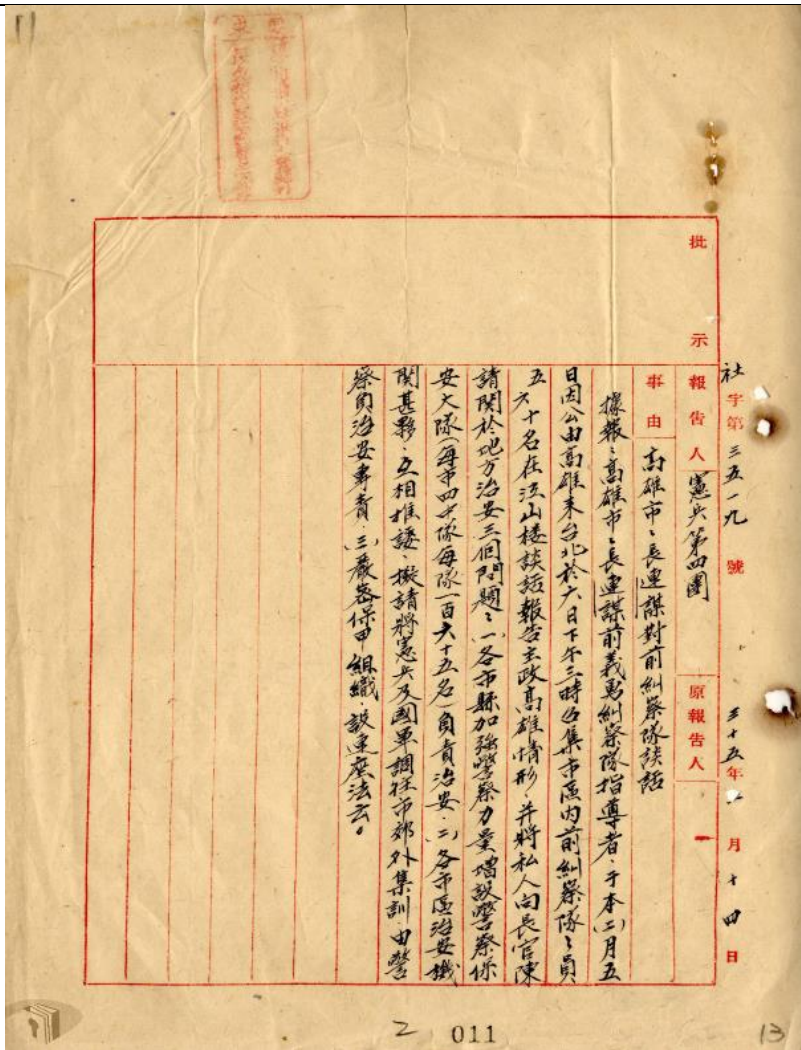 社字第三五一九號 三十五年二月十四日
批示
報告人 憲兵第四團 原報告人
事由 高雄市々長連謀對前糾察隊談話
據報:高雄市々長連謀前義勇糾察隊指導者,于本(二)月五
日因公由高雄來台北於六日下午三時召集市區内前糾察隊々員
五六十名在江山楼談話報告主政高雄情形,并將私人向長官陳
請関於地方治安三個問題:(一)各市縣加強警察力量增設警察保
安大隊(每市四中隊每隊一百六十五名)負責治安.(二)各市區治安機
関甚夥,互相推諉,擬請將憲兵及國軍調往市郊外集訓,由警
察負治安專責.(三)嚴密保甲組織,設連座法云。
2 011
13